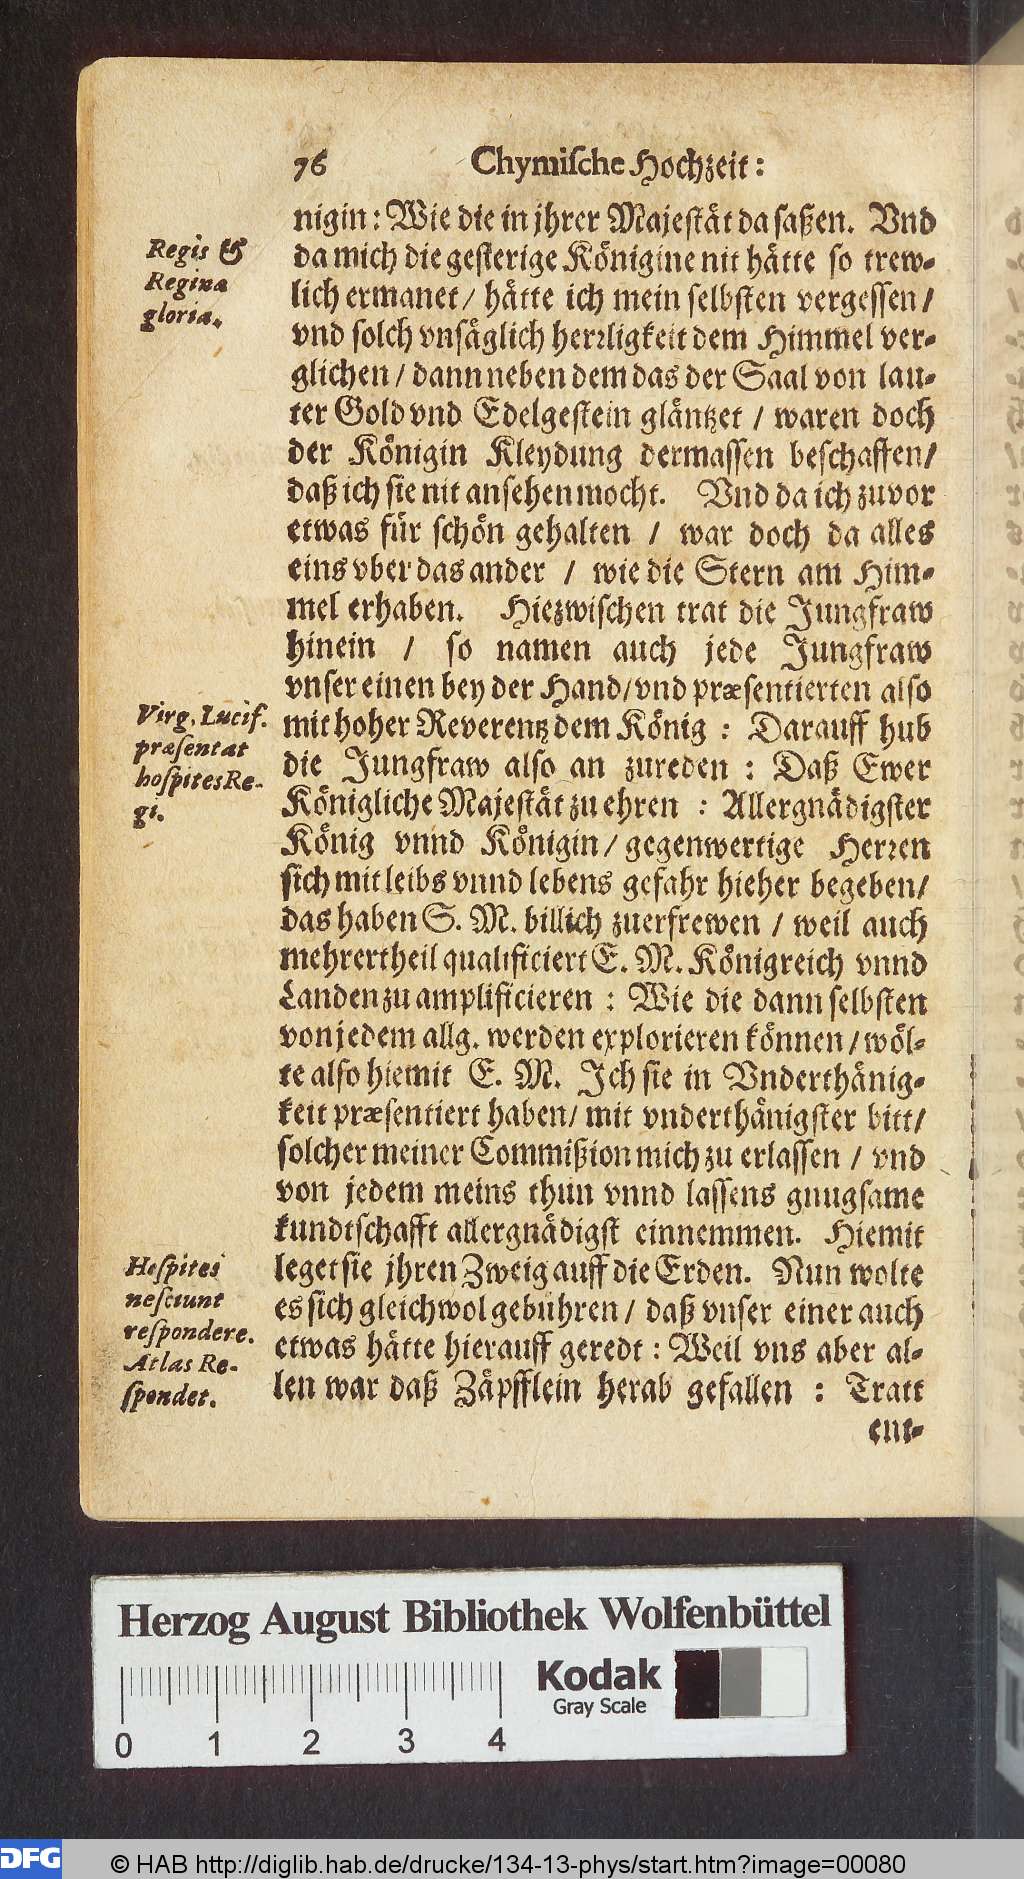 76 Chymische Hochzeit:
nigin: Wie die in jhrer Majestät da saßen. Vnd
da mich die gesterige Königine nit hätte so trew-
lich ermanet / hätte ich mein selbsten vergessen /
vnd solch vnsäglich herrligkeit dem Himmel ver-
glichen / dann neben dem das der Saal von lau-
ter Gold vnd Edelgestein gläntzet / waren doch
der Königin Kleydung dermassen beschaffen /
daß ich sie nit ansehen mocht. Vnd da ich zuvor
etwas für schön gehalten / war doch da alles
eins vber das ander / wie die Stern am Him-
mel erhaben. Hiezwischen trat die Jungfraw
hinein / so namen auch jede Jungfraw
vnser einen bey der Hand / vnd præsentierten also
mit hoher Reverentz dem König : Darauff hub
die Jungfraw also an zureden : Daß Ewer
Königliche Majestät zu ehren : Allergnädigster
König vnnd Königin / gegenwertige Herren
sich mit leibs vnnd lebens gefahr hieher begeben /
das haben S. M. billich zuerfrewen / weil auch
mehrertheil qualificiert E. M. Königreich vnnd
Landen zu amplificieren : Wie die dann selbsten
von jedem allg. werden explorieren können / wöl-
te also hiemit E. M. Ich sie in Vnderthänig-
keit præsentiert haben / mit vnderthänigster bitt /
solcher meiner Commißion mich zu erlassen / vnd
von jedem meins thun vnnd lassens gnugsame
kundtschafft allergnädigst einnemmen. Hiemit
leget sie jhren Zweig auff die Erden. Nun wolte
es sich gleichwol gebühren / daß vnser einer auch
etwas hätte hierauff geredt : Weil vns aber al-
len war daß Zäpfflein herab gefallen : Tratt
ent-
Regis &
Reginæ
gloria.
Virg. Lucif.
præsentat
hospites Re-
gi.
Hospites
nesciunt
respondere.
Atlas Re-
spondet.
Herzog August Bibliothek Wolfenbüttel
Kodak
Gray Scale
0 1 2 3 4
DFG © HAB http://diglib.hab.de/drucke/134-13-phys/start.htm?image=00080